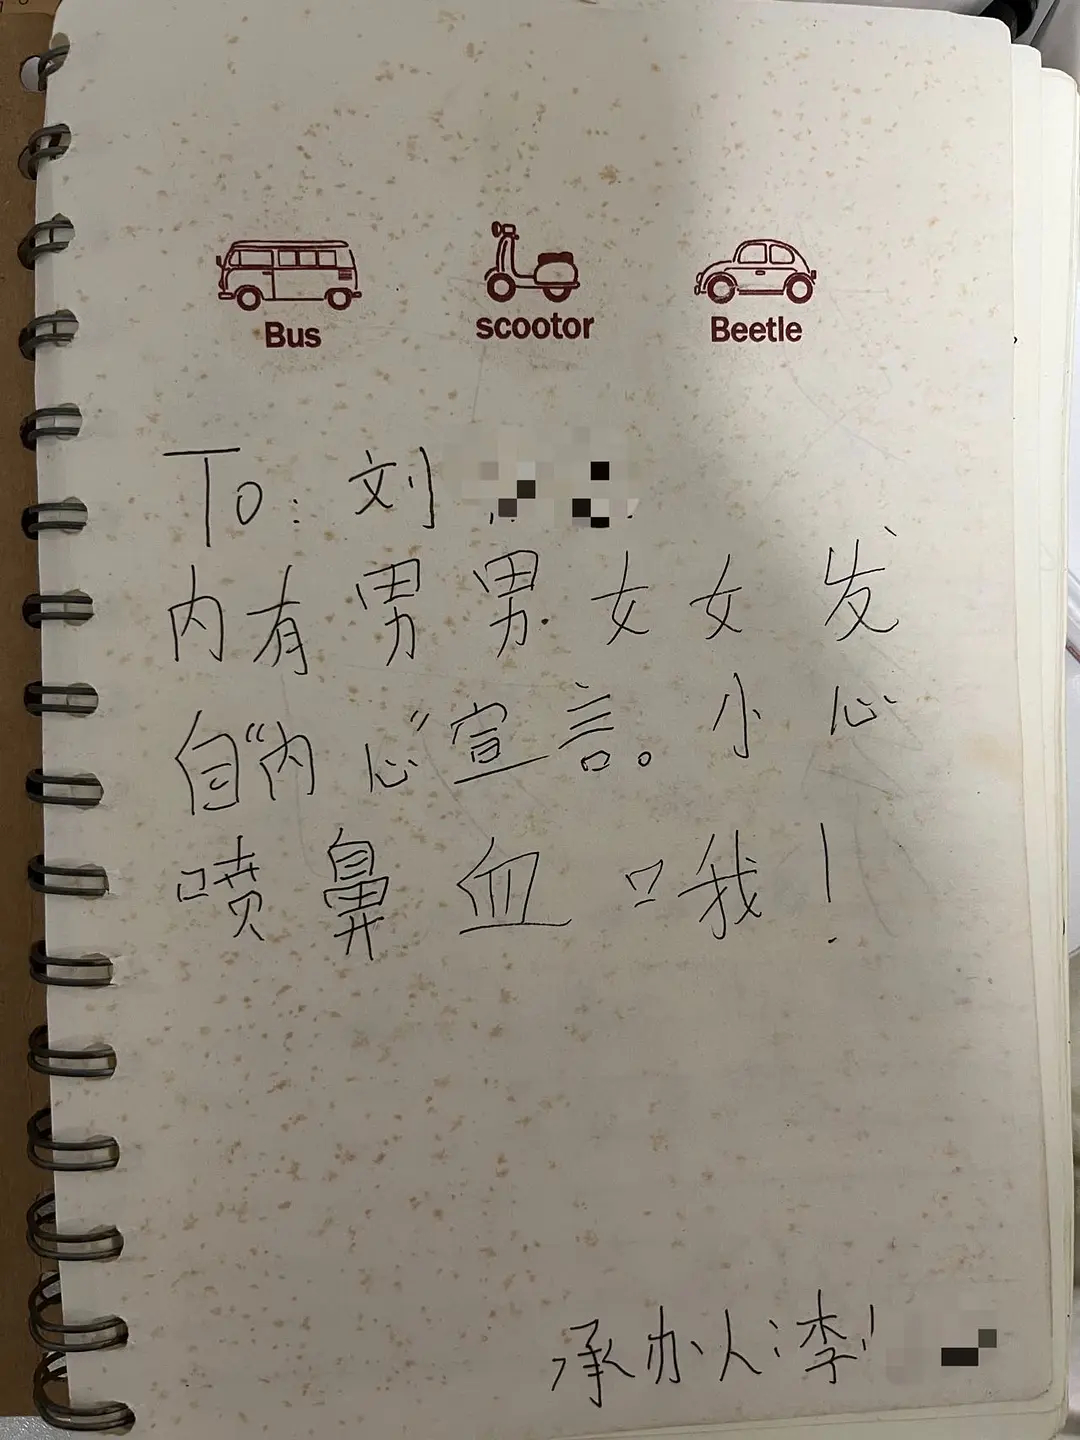 Bus scootor Beetle
To: 刘
内有男男女女发
自“内心”宣言。小心
喷鼻血哦!
承办人:李